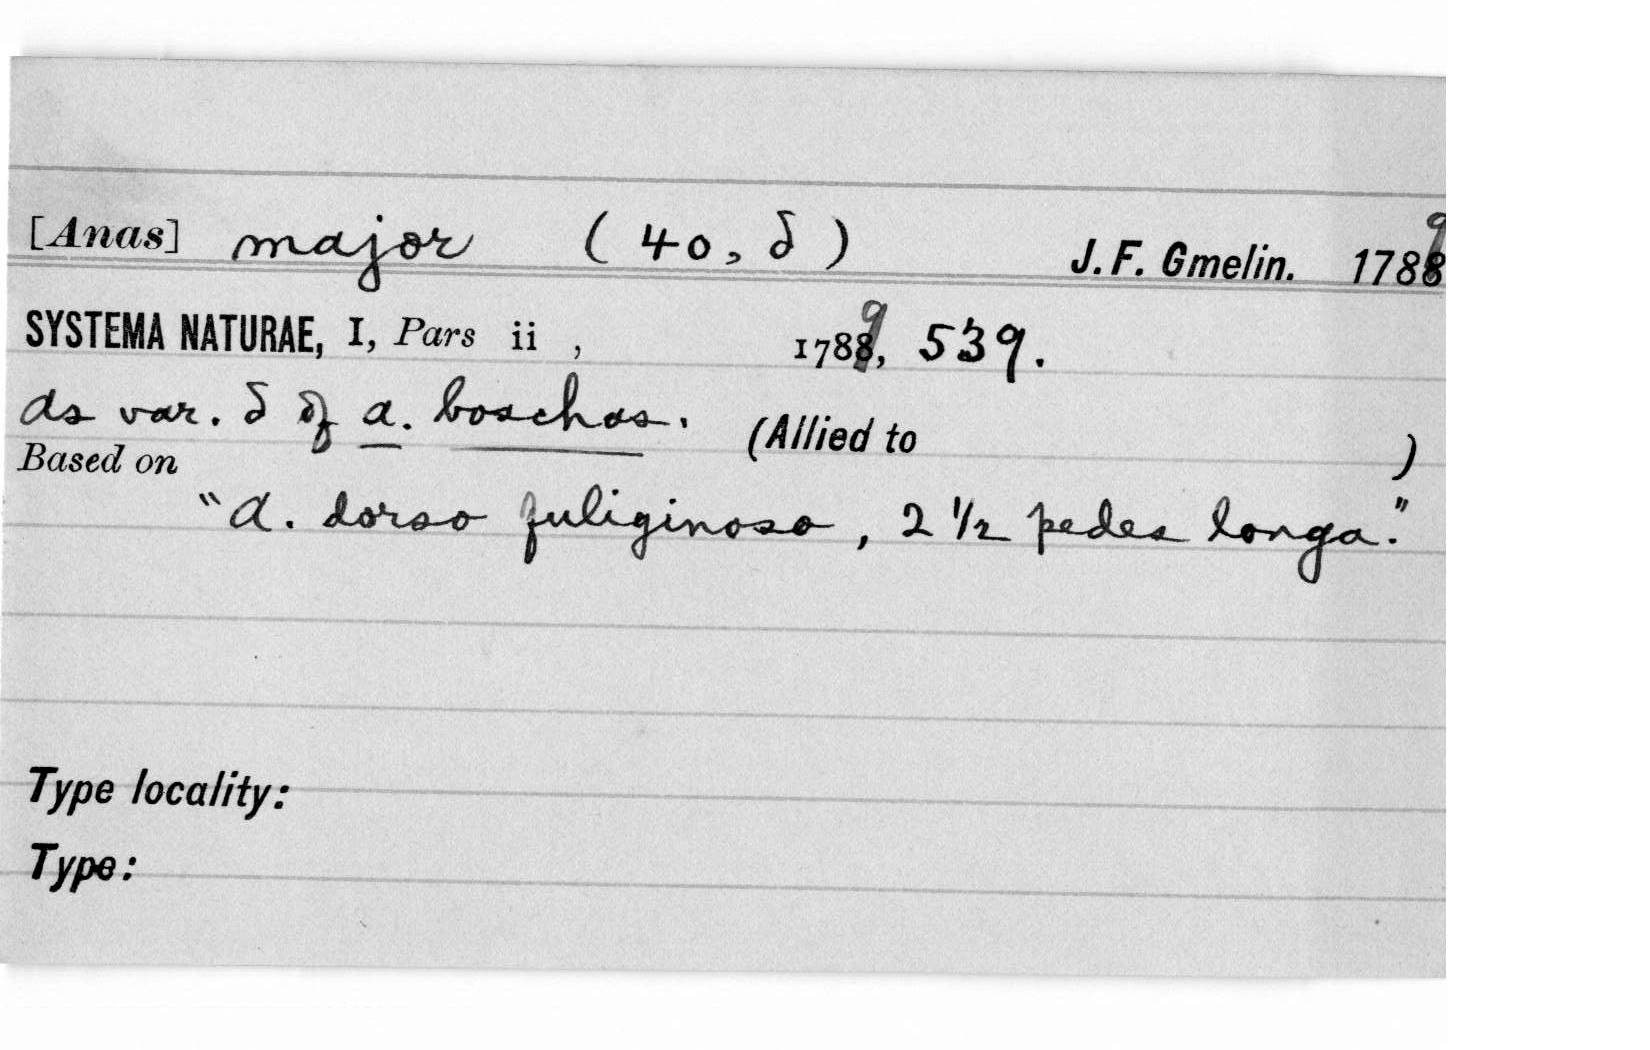 [Anas] major (40, δ) J. F. Gmelin. 1789
SYSTEMA NATURAE, I, Pars ii, 1789, 539.
as var. δ of a. boschas. (Allied to )
Based on
"A. dorso fuliginoso, 2 1/2 pedes longa."
Type locality:
Type: